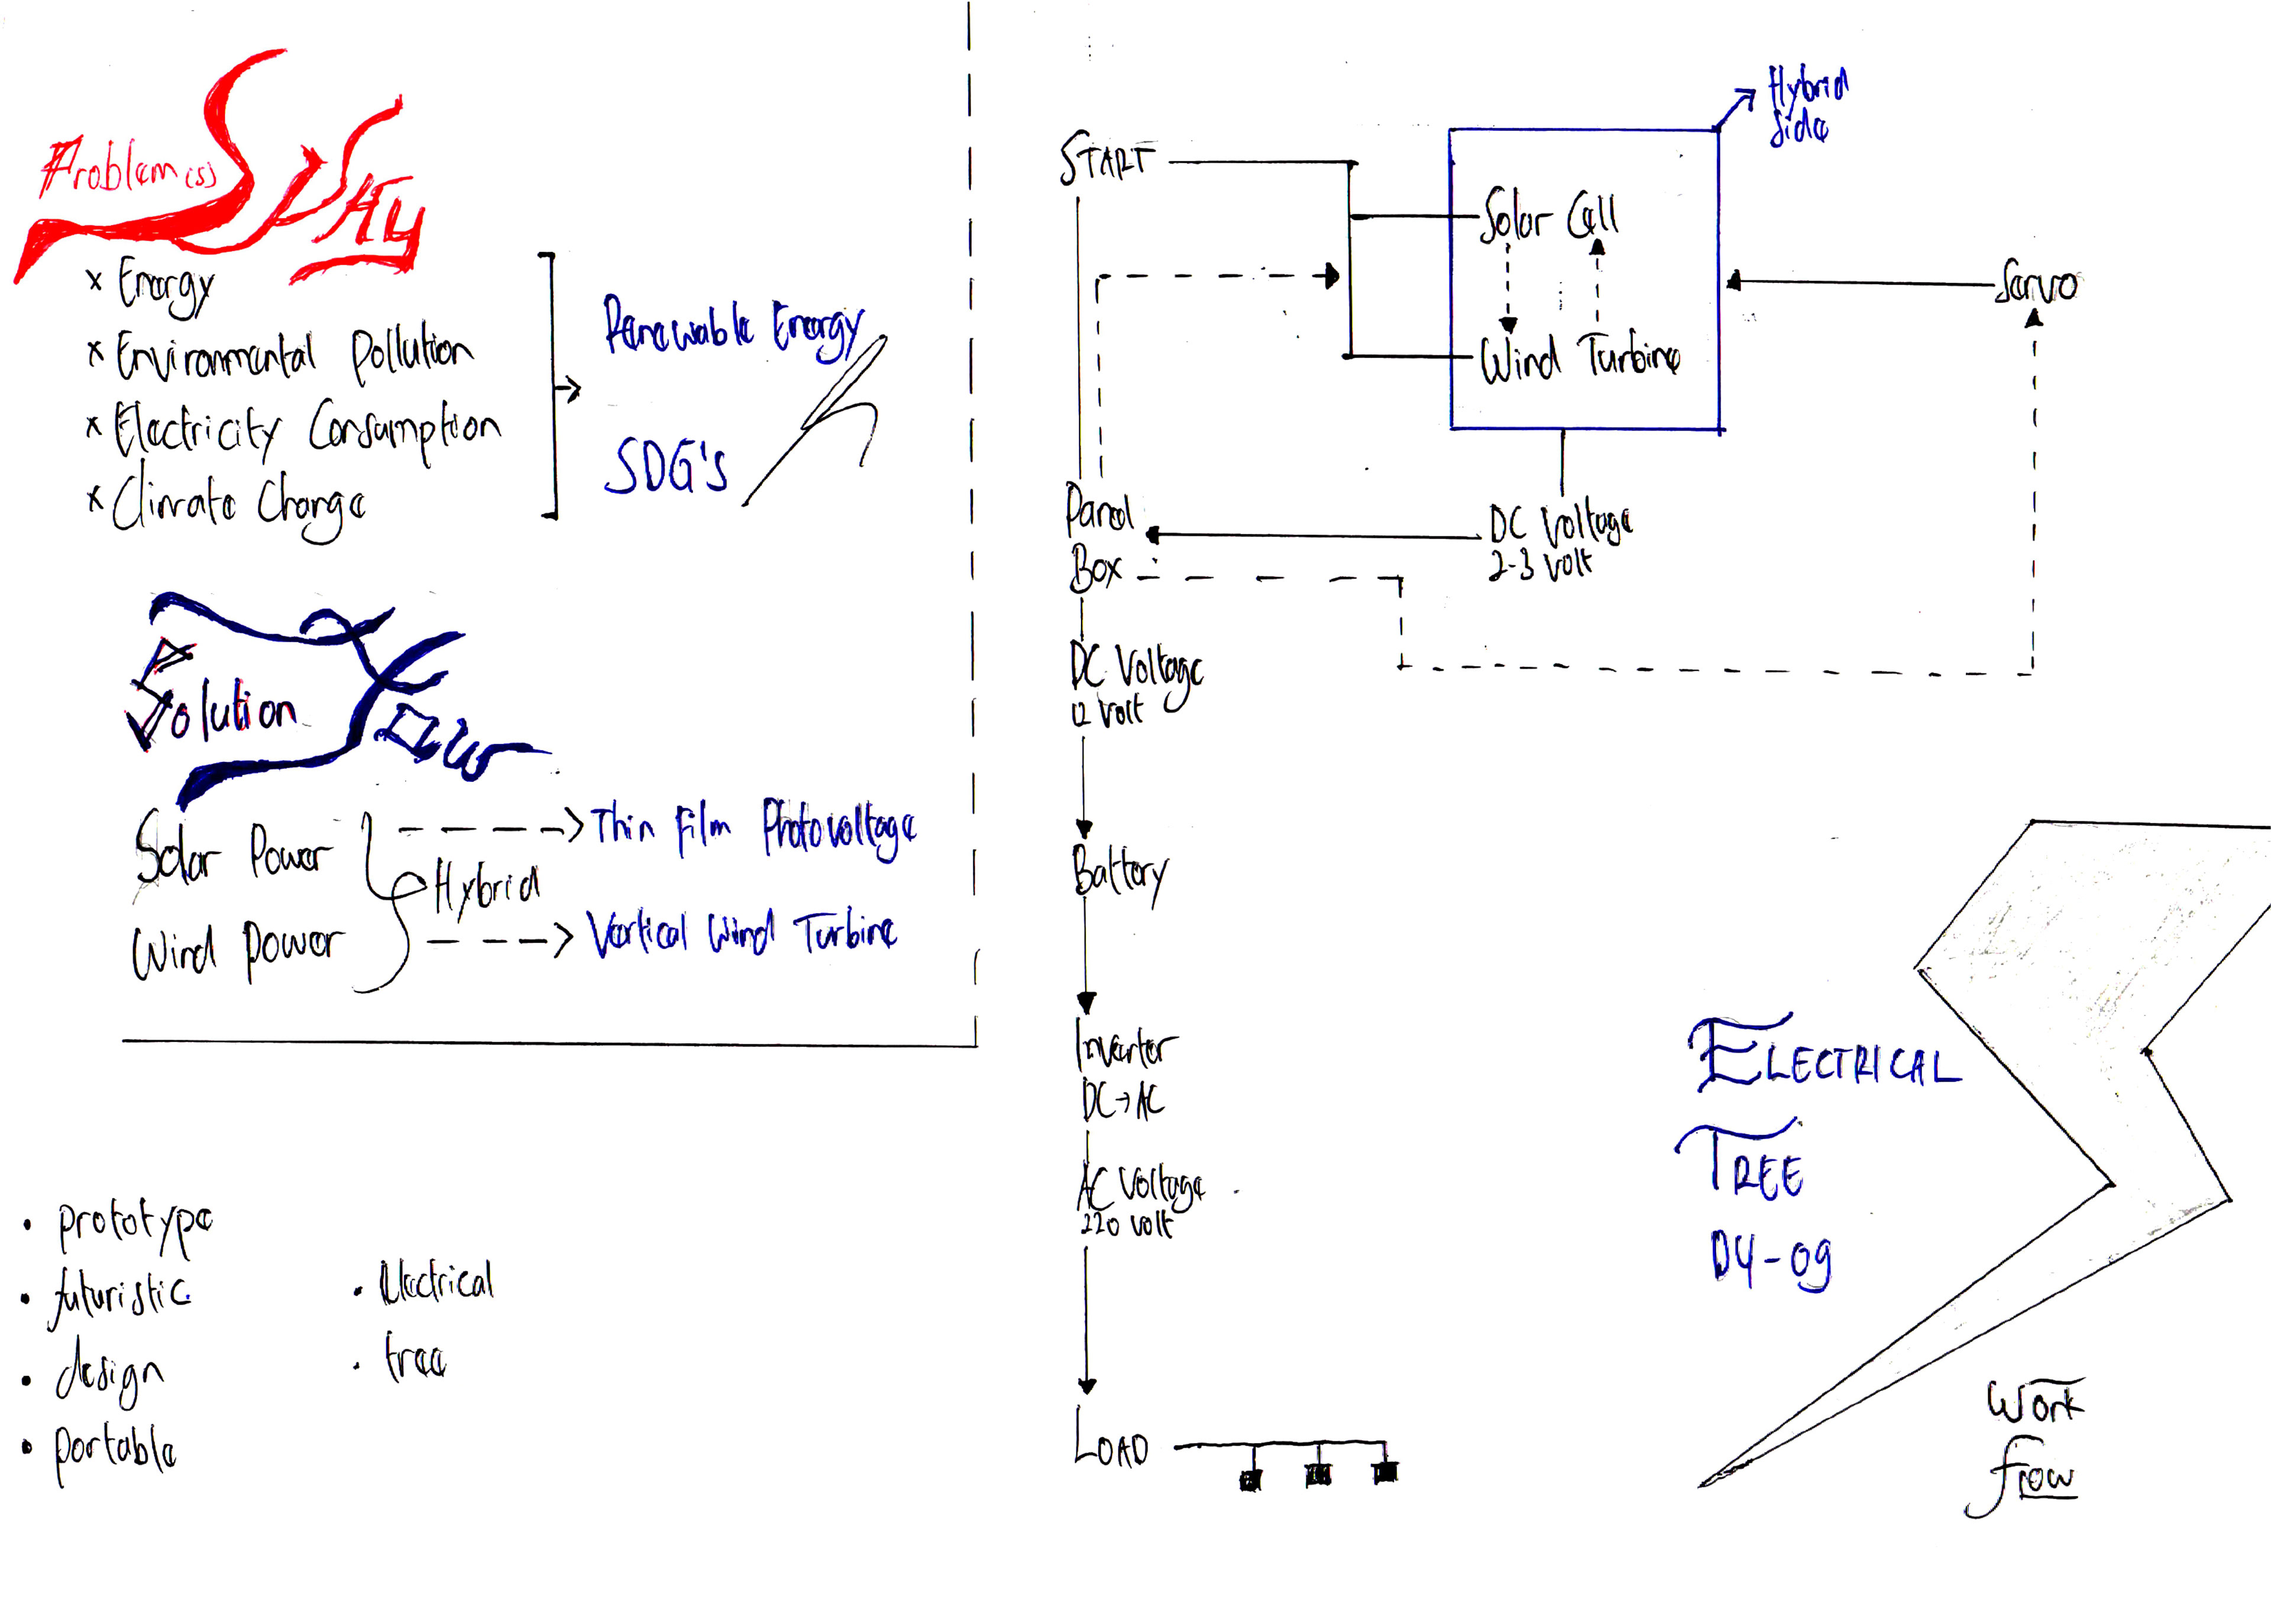 Problem(s)
x Energy
x Environmental Pollution
x Electricity Consumption
x Climate Change
Renewable Energy
SDG's
Solution
Solar Power
Wind Power
Hybrid
Thin Film Photovoltage
Vertical Wind Turbine
• prototype
• futuristic
• design
• portable
• Electrical
• tree
START
Hybrid
Side
Solar Cell
Wind Turbine
Servo
Panel
Box
DC Voltage
2-3 Volt
DC Voltage
12 Volt
Battery
Inverter
DC→AC
AC Voltage
220 Volt
LOAD
ELECTRICAL
TREE
D4-09
Work
flow